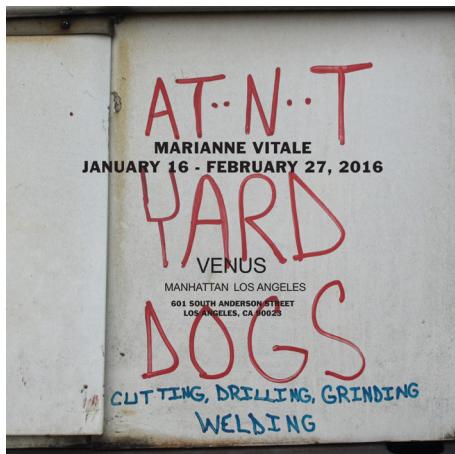 AT··N··T
MARIANNE VITALE
JANUARY 16 - FEBRUARY 27, 2016
YARD
VENUS
MANHATTAN LOS ANGELES
601 SOUTH ANDERSON STREET
LOS ANGELES, CA 90023
DOGS
CUTTING, DRILLING, GRINDING
WELDING